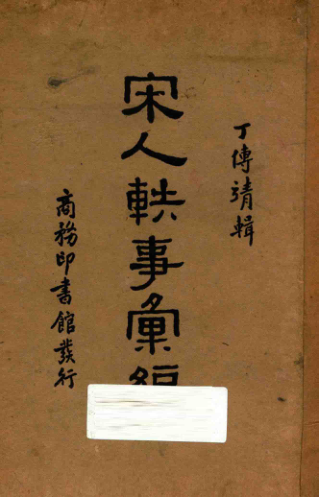 丁傳靖輯
宋人軼事彙編
商務印書館發行